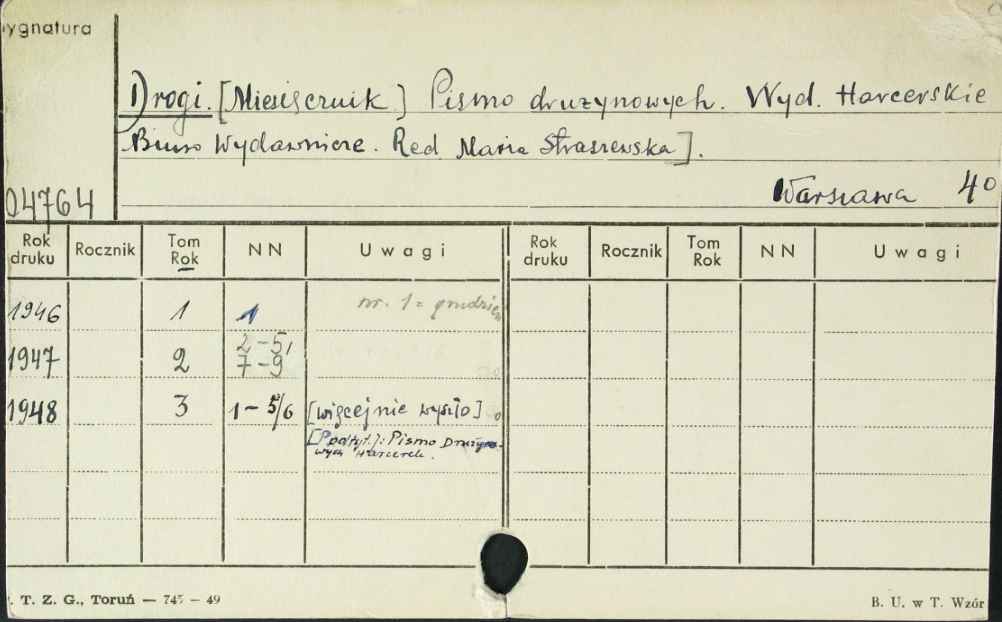 ygnatura
Drogi. [Miesięcznik] Pismo drużynowych. Wyd. Harcerskie
Biuro Wydawnicze. Red Maria Straszewska].
Warszawa 4°
04764
Rok druku Rocznik Tom Rok NN Uwagi Rok druku Rocznik Tom Rok NN Uwagi
1946 1 1 nr. 1 = grudzień
1947 2 2-5, 7-9
1948 3 1-5/6 [więcej nie wyszło]
[Podtyt.]: Pismo Drużyno-
wych Harcerek.
. T. Z. G., Toruń — 745 - 49 B. U. w T. Wzór